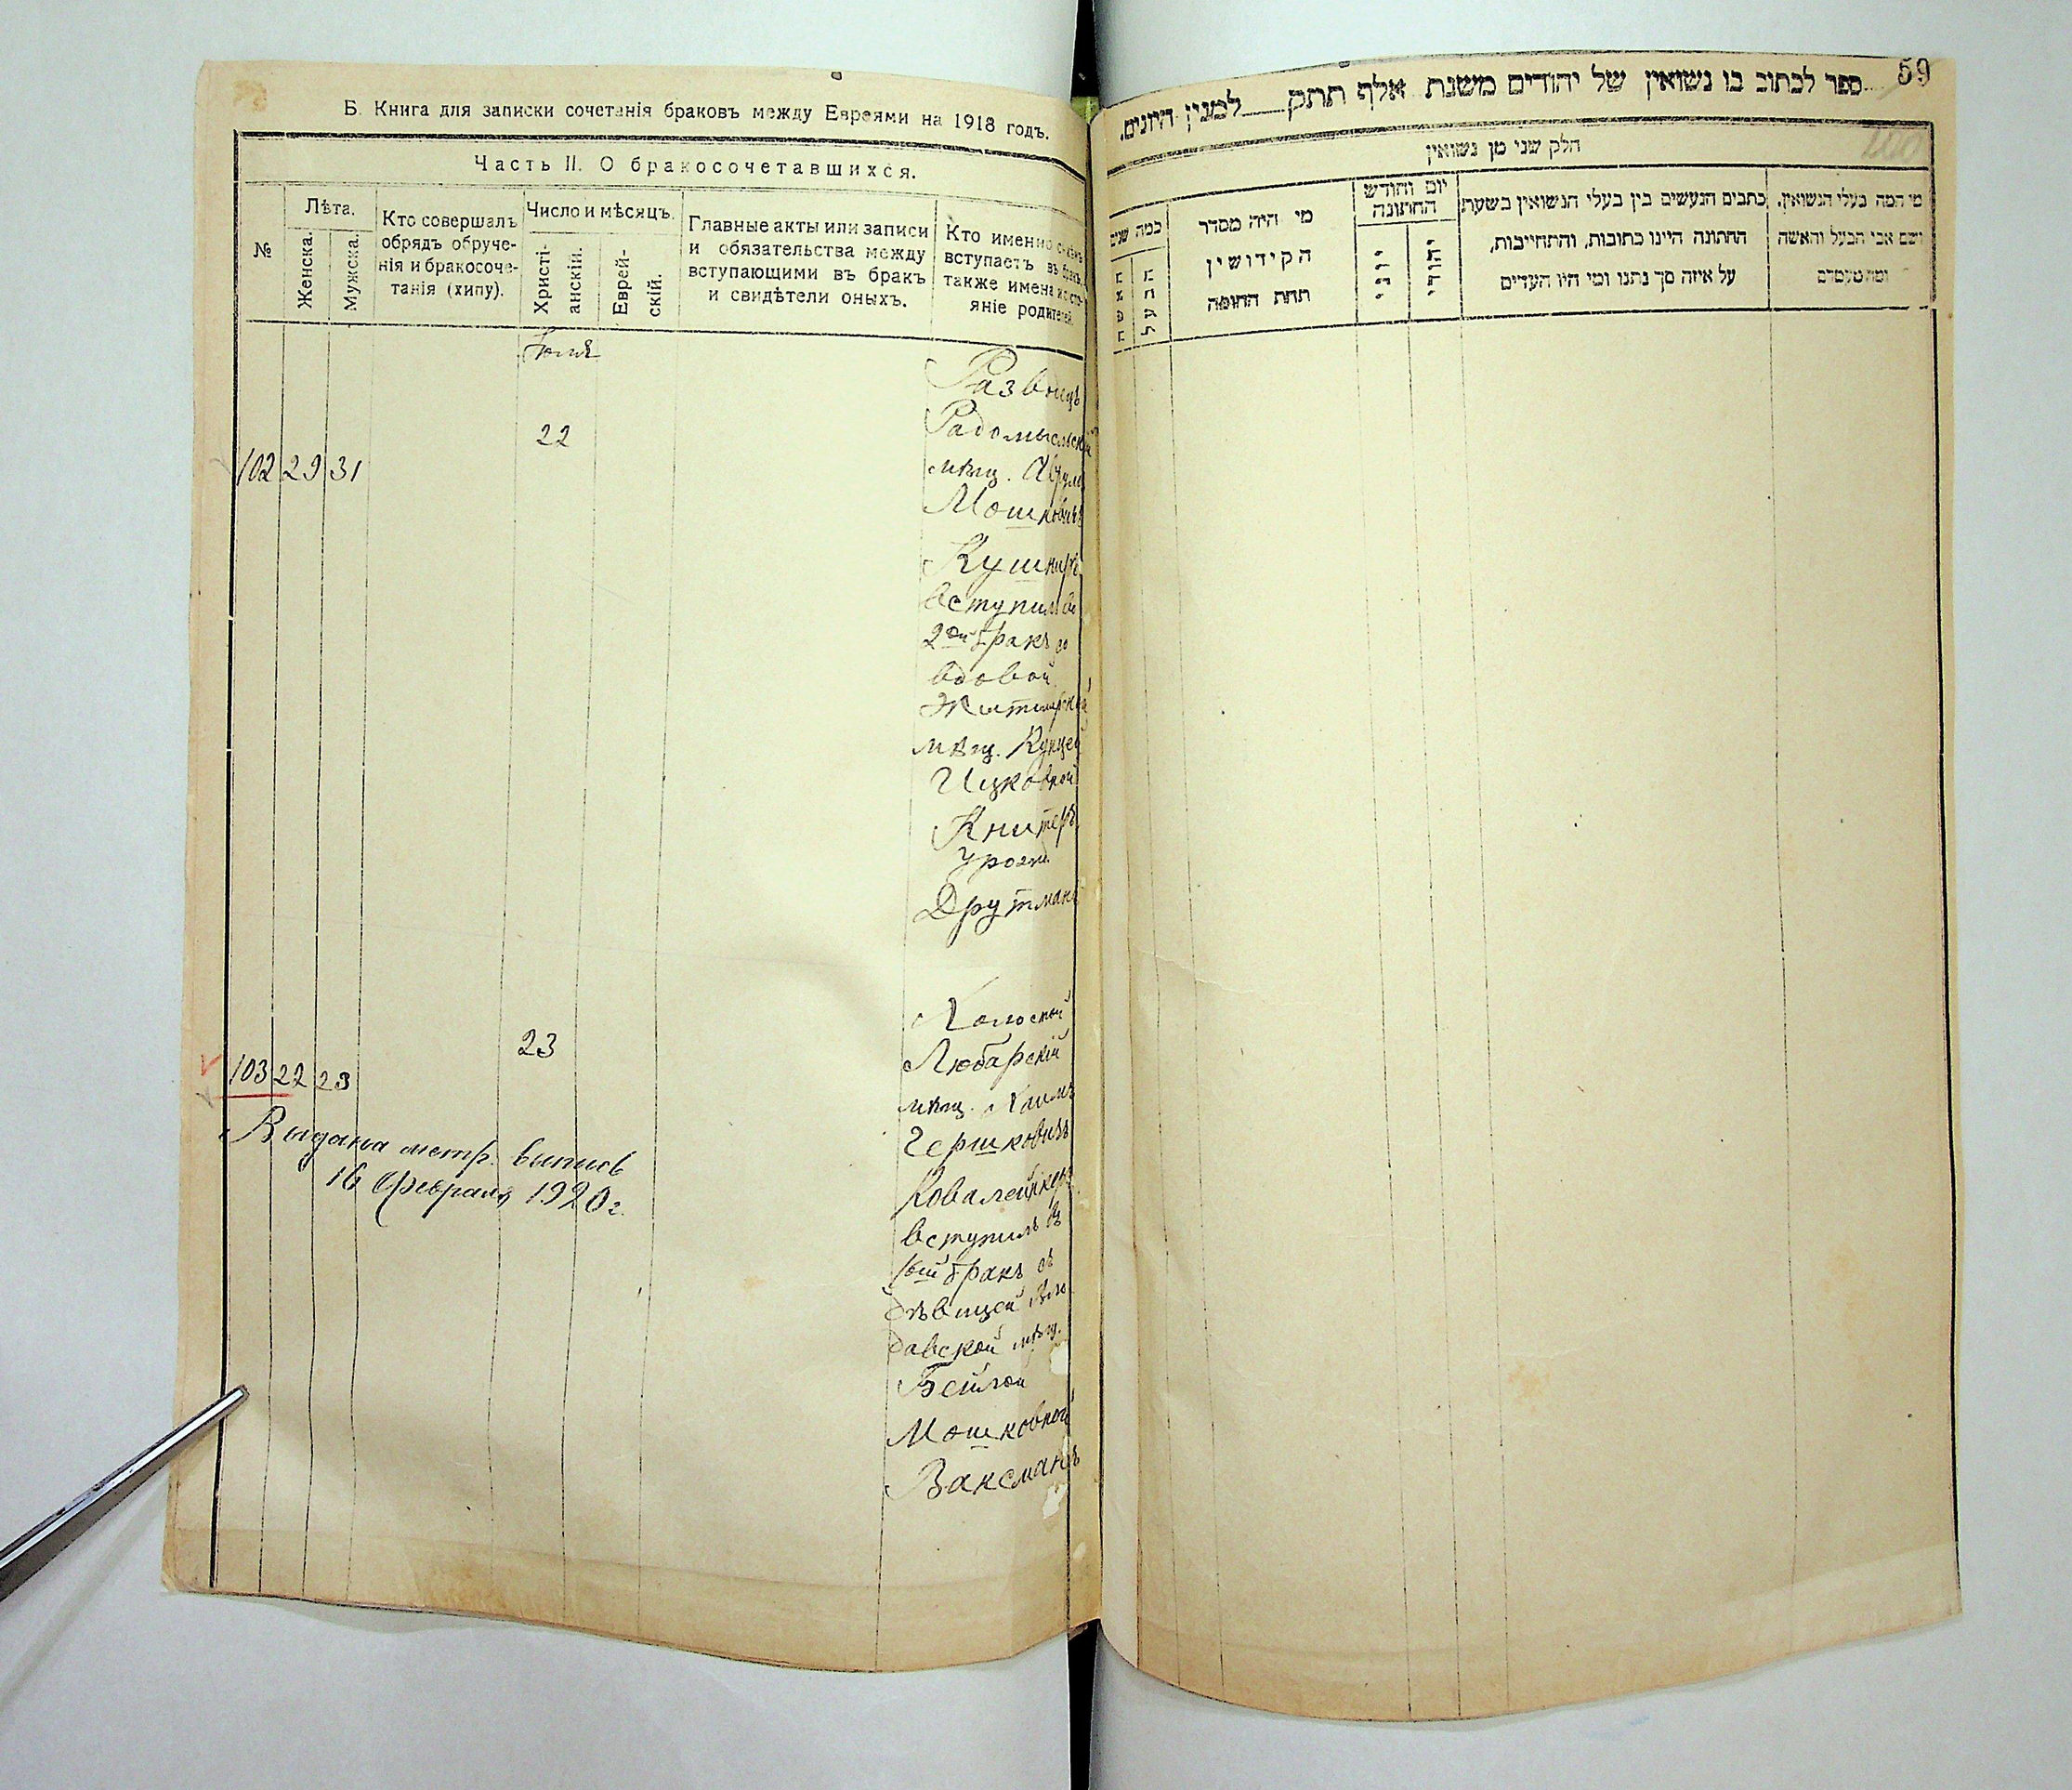 Б. Книга для записки сочетанія браковъ между Евреями на 1918 годъ.
Часть II. О бракосочетавшихся.
№
Лѣта.
Женска.
Мужска.
Кто совершалъ
обрядъ обруче-
нія и бракосоче-
танія (хипу).
Число и мѣсяцъ.
Христі-
анскій.
Еврей-
скій.
Главные акты или записи
и обязательства между
вступающими въ бракъ
и свидѣтели оныхъ.
Кто именно съ кѣмъ
вступаетъ въ бракъ,
также имена и сто-
яніе родителей.
102 29 31
22
Разводецъ
Радомысльскій
мѣщ.
Мошковичъ
Кушниръ
вступилъ во
2ой бракъ со
вдовой
Житомірской
мѣщ.
Ицковной
Книтеръ
урожд.
Друтманъ
103 22 23
23
Холостой
Любарскій
мѣщ. Хаимъ
Гершковичъ
вступилъ въ
1ый бракъ съ
дѣвицей
давской мѣщ.
Бейлой
Мошковной
Ваксманъ
Выдана метр. выпись
16 февраля 1920 г.
59
ספר לכתוב בו נשואין של יהודים משנת אלף תתק למנין היונים.
חלק שני מן נשואין
כמה שנים
האשה
הבעל
מי היה מסדר
הקידושין
תחת החופה
יום וחודש
החתונה
יוני
יהודי
כתבים הנעשים בין בעלי הנשואין בשעת
החתונה היינו כתובות, והתחייבות,
על איזה סך נתנו ומי היו העדים
מי המה בעלי הנשואין,
ושם אבי הבעל והאשה
ומה מעמדם